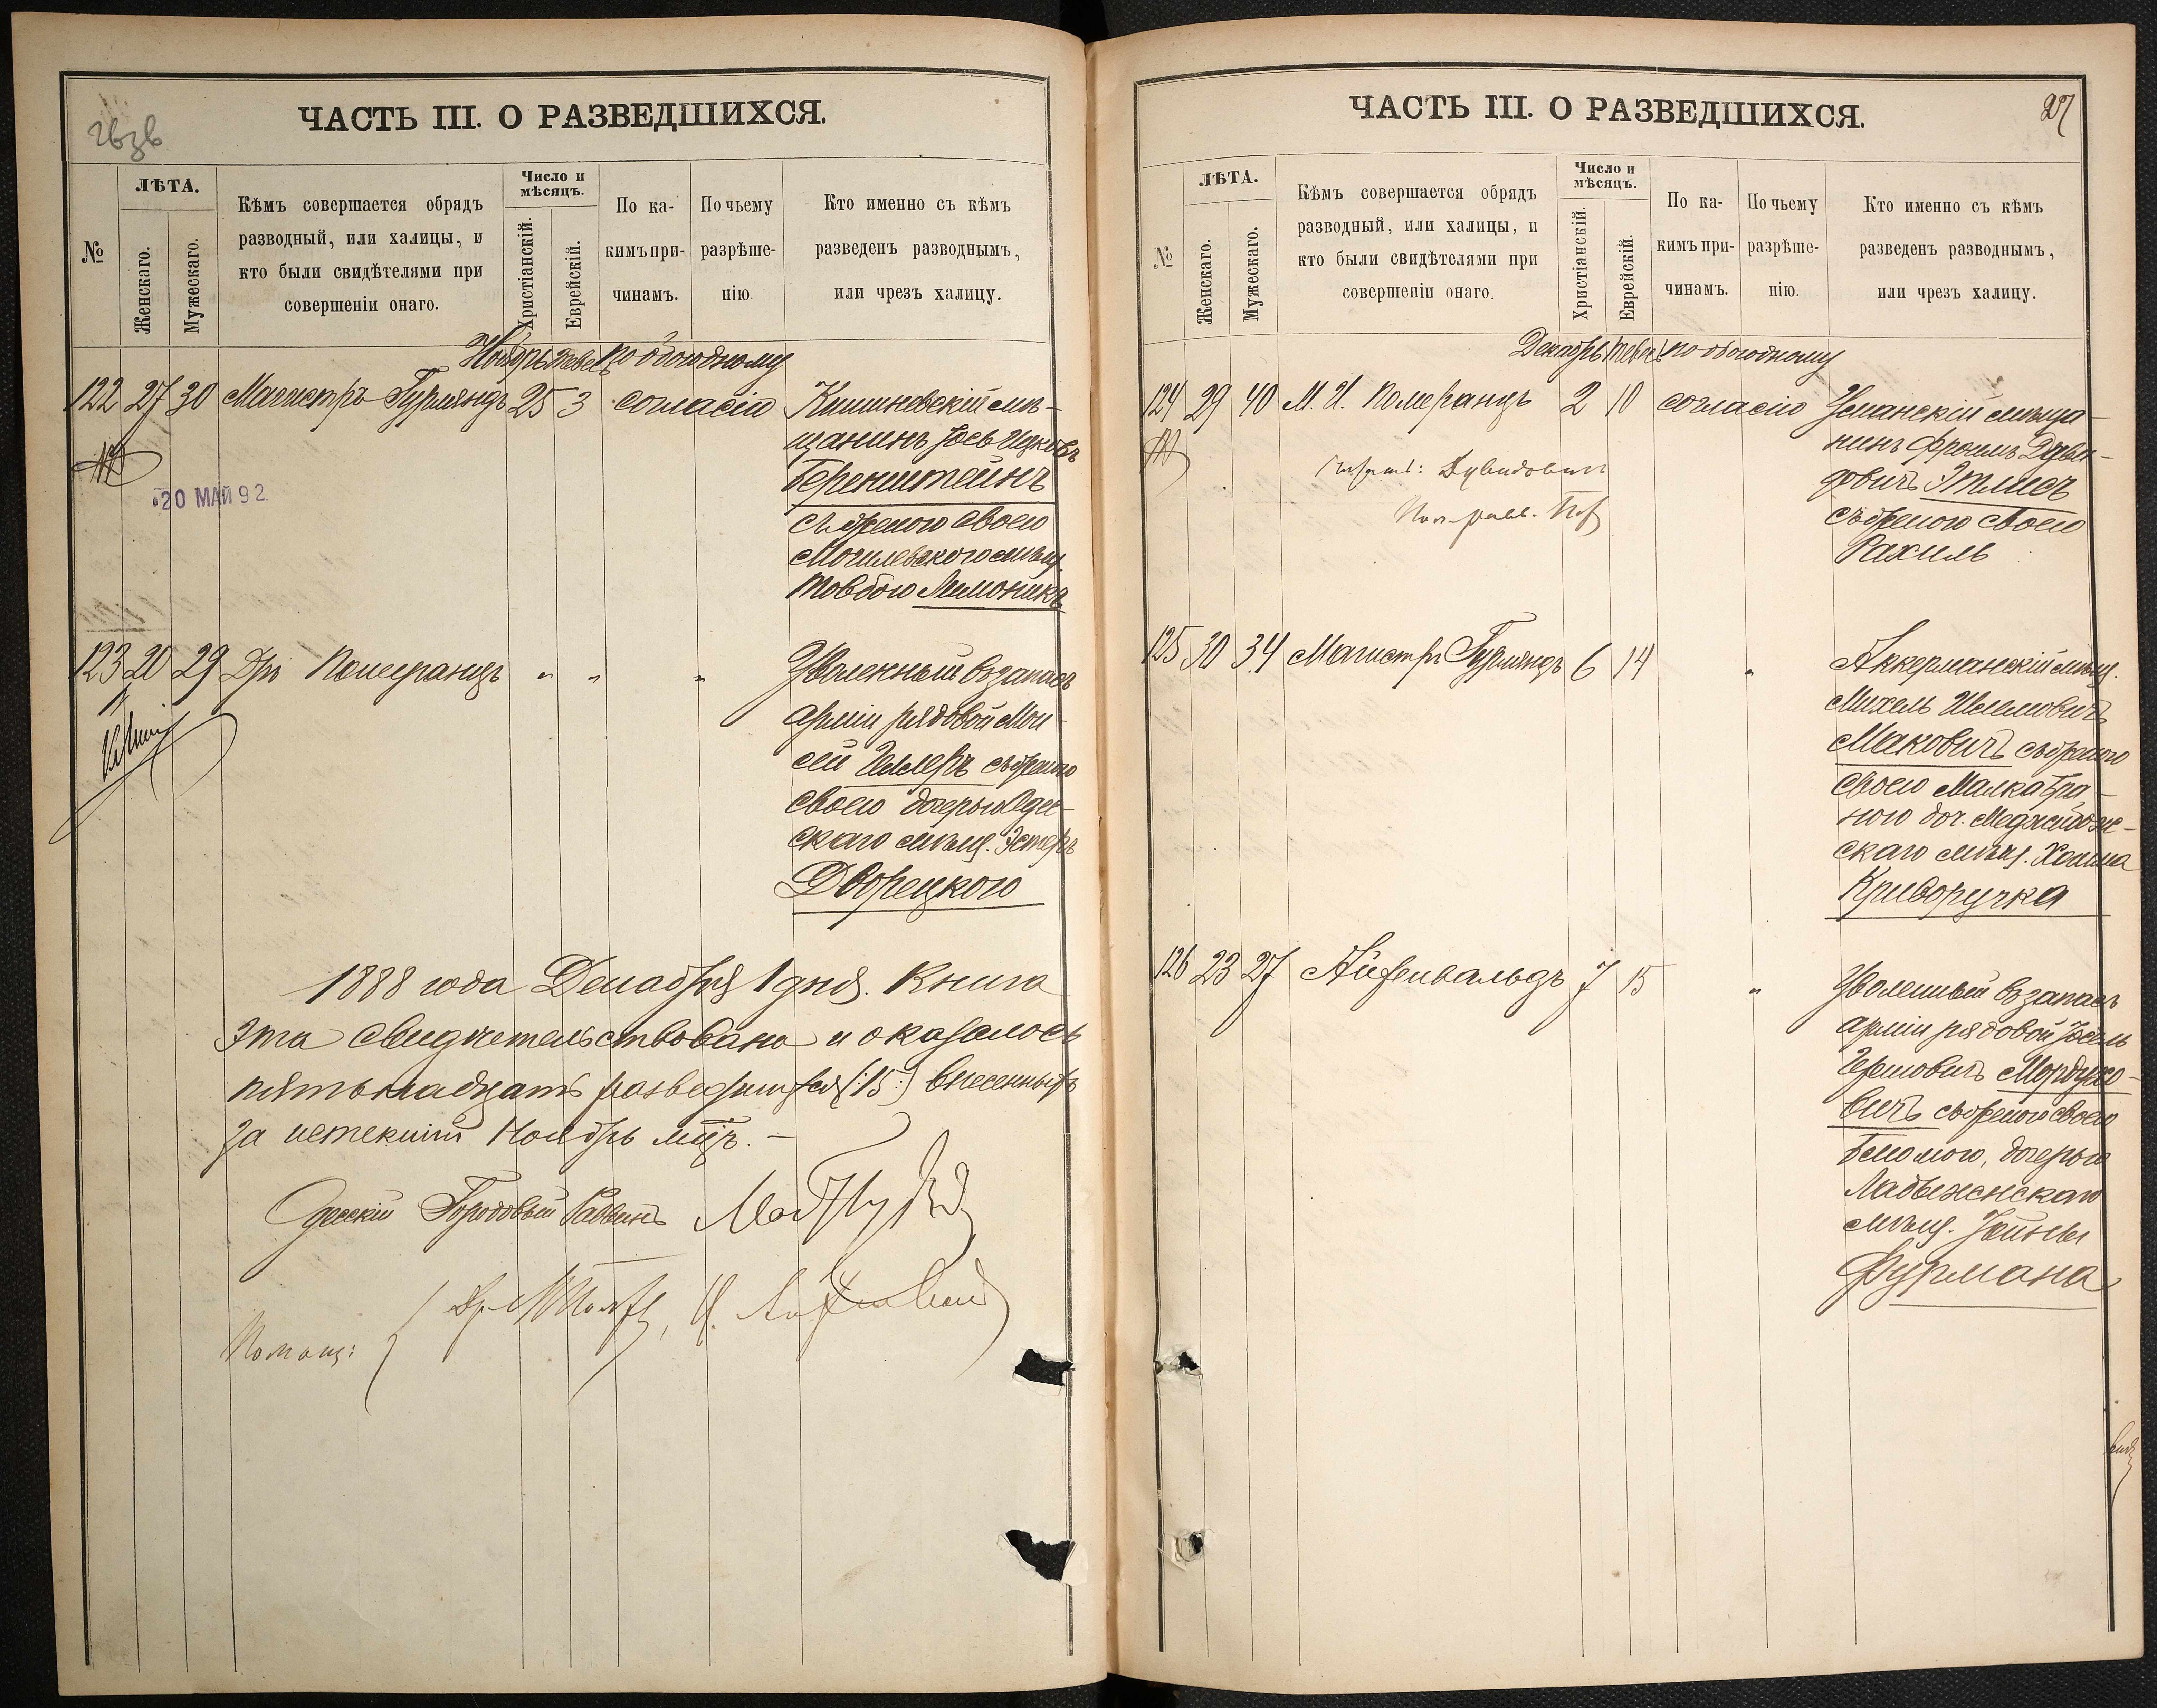 ЧАСТЬ III. О РАЗВЕДШИХСЯ.
№
ЛѢТА.
Женскаго.
Мужескаго.
Кѣмъ совершается обрядъ
разводный, или халицы, и
кто были свидѣтелями при
совершеніи онаго.
Число и
мѣсяцъ.
Христіанскій.
Еврейскій.
По ка-
кимъ при-
чинамъ.
По чьему
разрѣше-
нію.
Кто именно съ кѣмъ
разведенъ разводнымъ,
или чрезъ халицу.
Ноябрь Тевесъ по обоюдному
122 27 30 Магистръ Гурляндъ 25 3 согласію Кишиневскій мѣ-
щанинъ Іось Ицковъ
Беренштейнъ
съ женою своею
Могилевскою мѣщ.
Товбою Лимоникъ
20 МАЙ 92.
123 20 29 Дръ Померанцъ " " " Уволенный въ запасъ
арміи рядовой Мои-
сей Геллеръ съ женою
своею дочерью Одес-
скаго мѣщ. Эстеръ
Дворецкого
1888 года Декабря 1 дня. Книга
эта свидѣтельствована и оказалось
пятьнадцать разведшихся (:15:) внесенныхъ
за истекшій Ноябрь мцъ.-
Одесскій Городовый Раввинъ
Помощ:
ЧАСТЬ III. О РАЗВЕДШИХСЯ.
27
№
ЛѢТА.
Женскаго.
Мужескаго.
Кѣмъ совершается обрядъ
разводный, или халицы, и
кто были свидѣтелями при
совершеніи онаго.
Число и
мѣсяцъ.
Христіанскій.
Еврейскій.
По ка-
кимъ при-
чинамъ.
По чьему
разрѣше-
нію.
Кто именно съ кѣмъ
разведенъ разводнымъ,
или чрезъ халицу.
Декабрь Тевесъ по обоюдному
124 29 40 М. И. Померанцъ 2 10 согласію Уманскій мѣща-
нинъ Фроимъ Дуви-
довичъ Этлисъ
съ женою своею
Рахиль
Дувидовичъ
125 30 34 Магистръ Гурляндъ 6 14 " Аккерманскій мѣщ.
Михель Шмелиовичъ
Маковичъ съ женою
своею Малка Бра-
ною доч. Меджибож-
скаго мѣщ. Хаима
Криворучка
126 23 27 Айзенвальдъ 7 15 " Уволенный въ запасъ
арміи рядовой Іосель
Гершовичъ Мордухо-
вичъ съ женою своею
дочерью
Ладыженскаго
мѣщ. Іойны
Фурмана